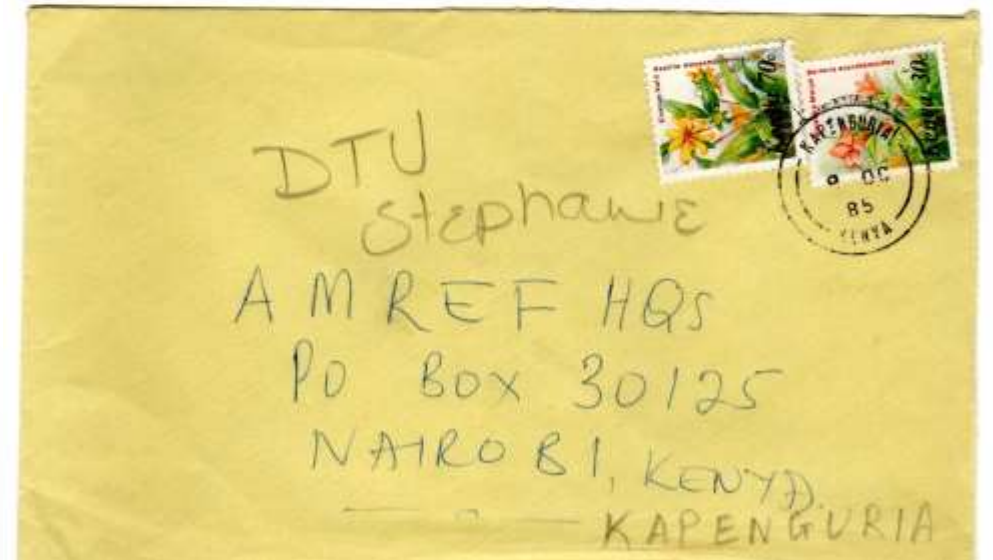 DTU
Stephanie
AMREF HQS
PO BOX 30125
NAIROBI, KENYA
KAPENGURIA
KAPENGURIA
OC
85
KENYA